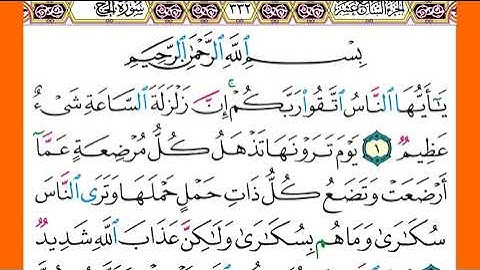 سورة الحج ٣٣٢ الجزء السابع عشر
بِسْمِ اللَّهِ الرَّحْمَٰنِ الرَّحِيمِ
يَا أَيُّهَا النَّاسُ اتَّقُوا رَبَّكُمْ ۚ إِنَّ زَلْزَلَةَ السَّاعَةِ شَيْءٌ
عَظِيمٌ ١ يَوْمَ تَرَوْنَهَا تَذْهَلُ كُلُّ مُرْضِعَةٍ عَمَّا
أَرْضَعَتْ وَتَضَعُ كُلُّ ذَاتِ حَمْلٍ حَمْلَهَا وَتَرَى النَّاسَ
سُكَارَىٰ وَمَا هُم بِسُكَارَىٰ وَلَٰكِنَّ عَذَابَ اللَّهِ شَدِيدٌ